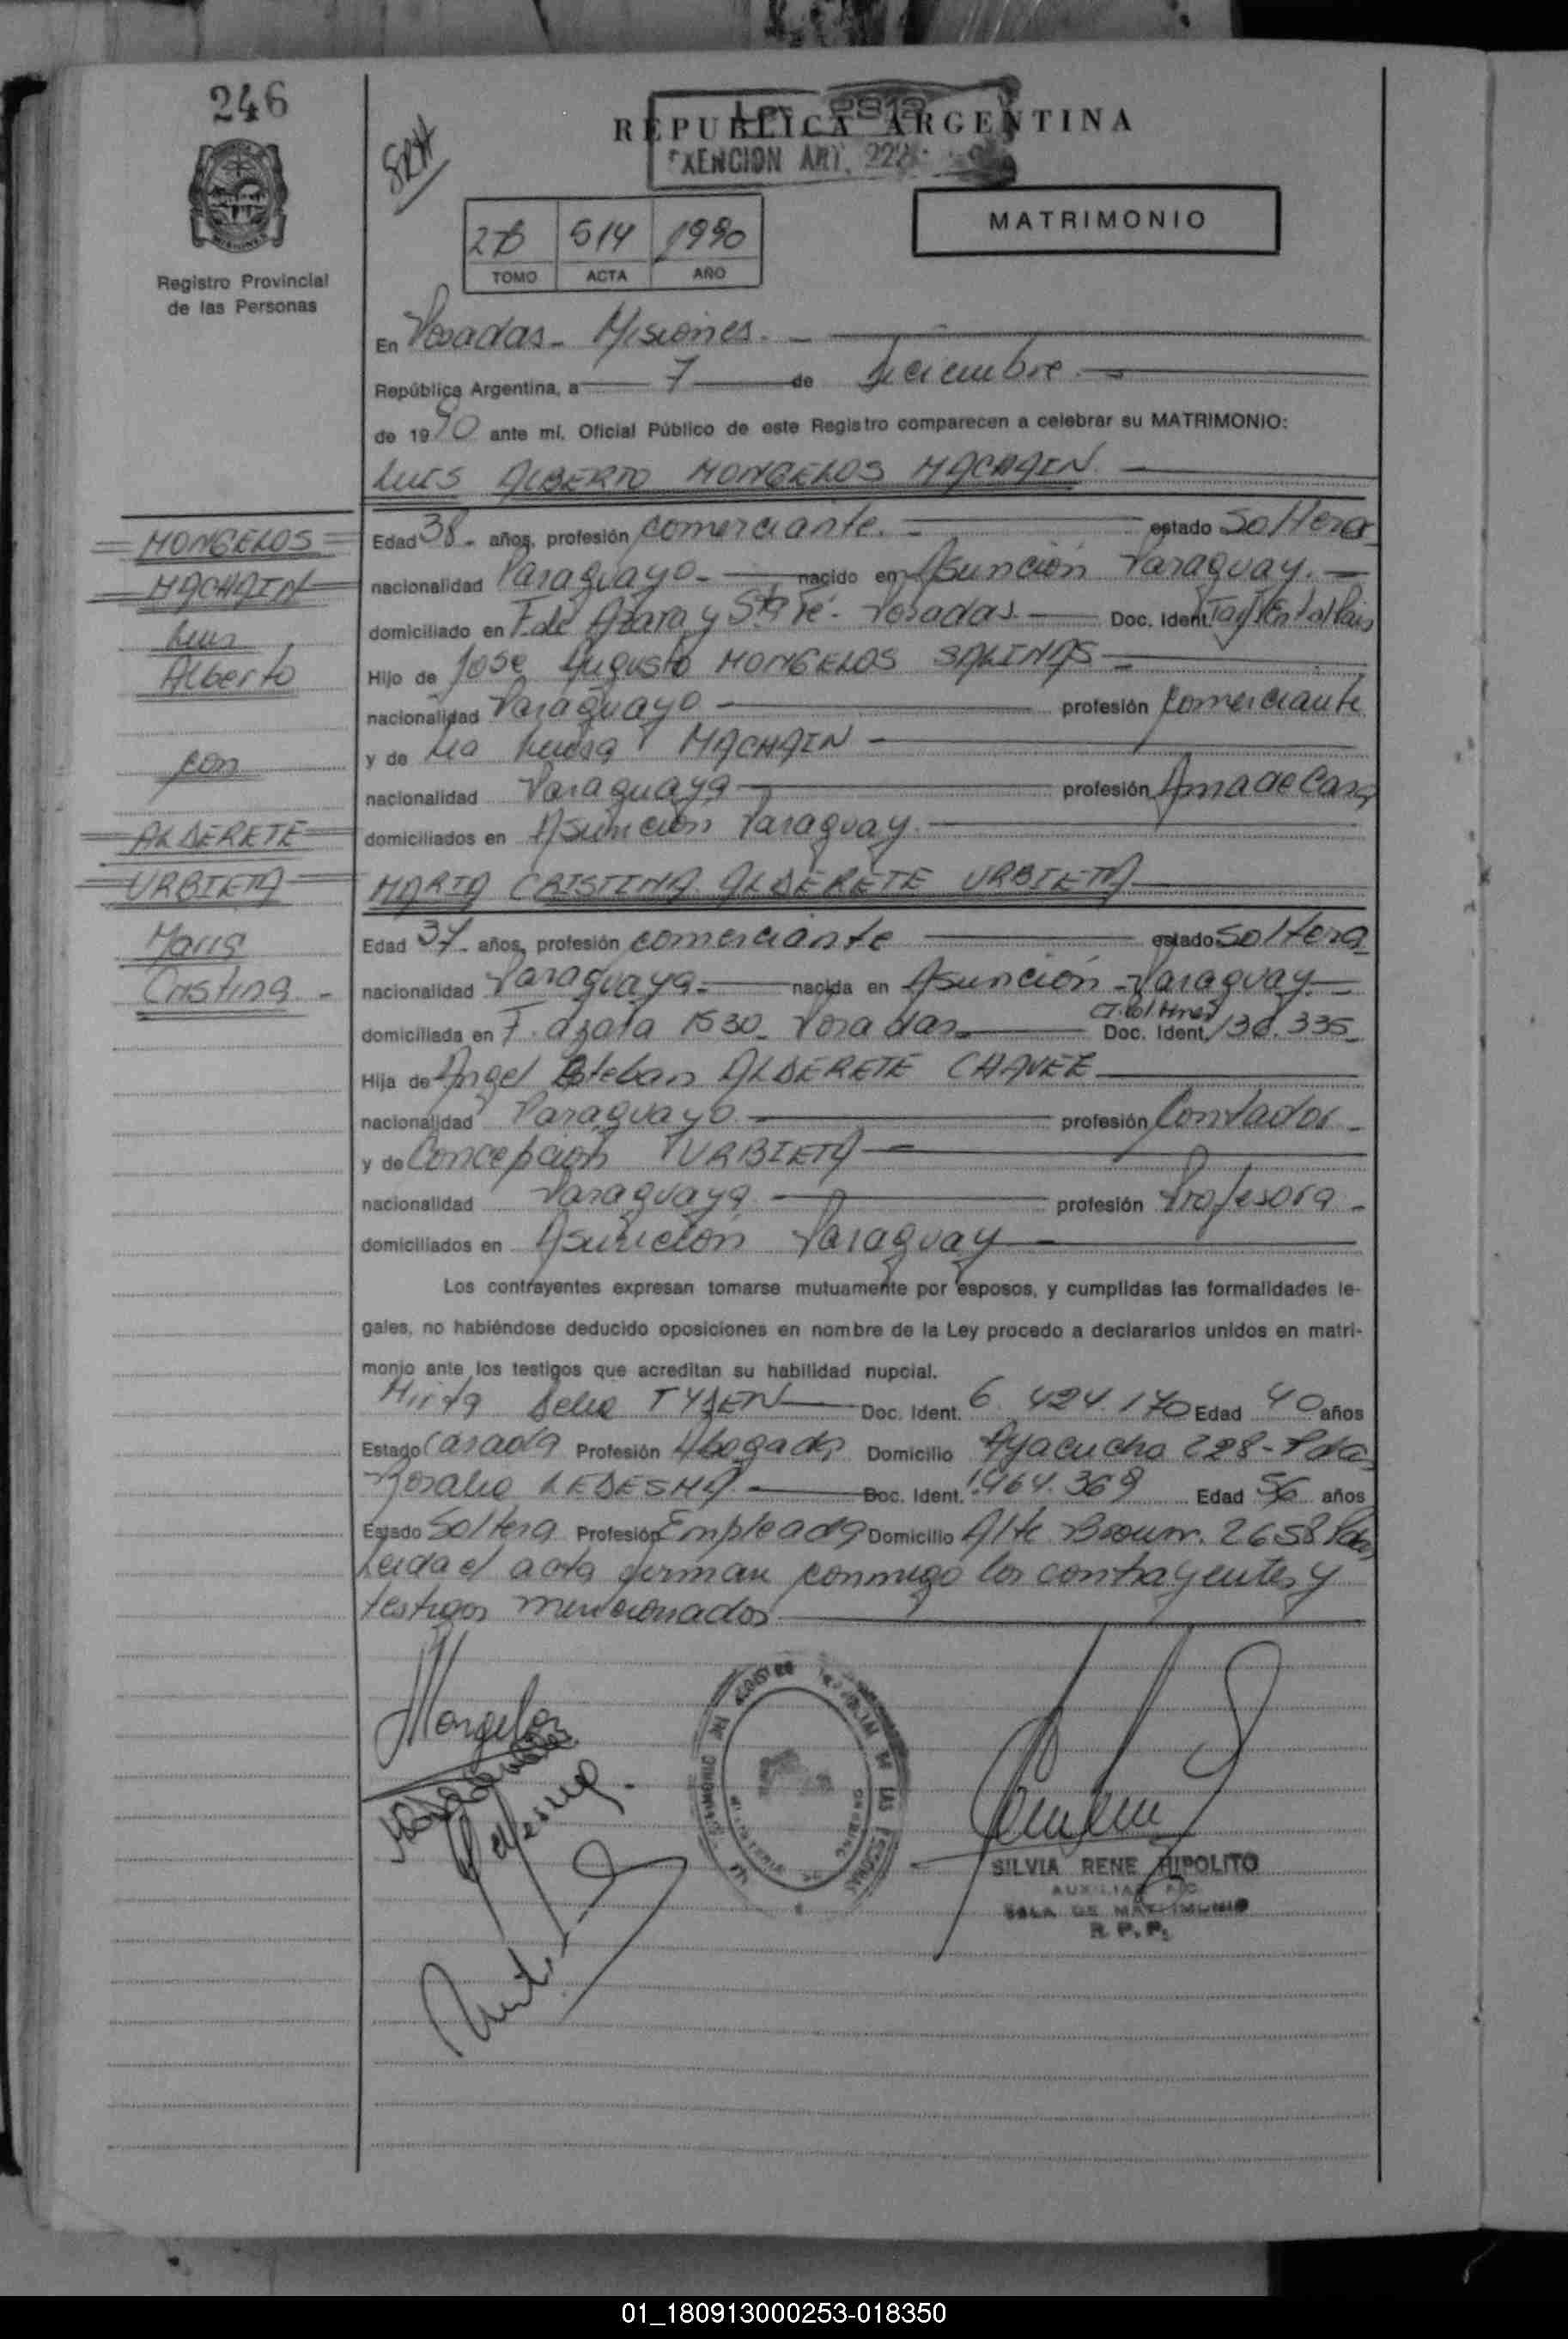 246
REPUBLICA ARGENTINA
EXENCION ART. 222
MATRIMONIO
514 1990
TOMO ACTA AÑO
Registro Provincial
de las Personas
En Posadas - Misiones. -
República Argentina, a 7 de Diciembre
de 1990 ante mí, Oficial Público de este Registro comparecen a celebrar su MATRIMONIO:
LUIS ALBERTO MONGELOS MACHAIN
MONGELOS
MACHAIN
Luis
Alberto
con
ALDERETE
URBIETA
Maria
Cristina -
Edad 38 - años, profesión comerciante. - estado
nacionalidad Paraguayo - nacido en Asunción Paraguay. -
domiciliado en F. de Azara y Sta Fé - Posadas. Doc. Ident.
Hijo de Jose Augusto MONGELOS SALINAS -
nacionalidad Paraguayo - profesión comerciante
y de Ma Luisa MACHAIN -
nacionalidad Paraguaya profesión Ama de Casa
domiciliados en Asunción Paraguay. -
MARIA CRISTINA ALDERETE URBIETA
Edad 37 - años, profesión comerciante estado Soltera
nacionalidad Paraguaya. - nacida en Asunción - Paraguay
domiciliada en F. azara 1530 - Posadas - Doc. Ident. 136.335 -
Hija de Angel Esteban ALDERETE CHAVEZ
nacionalidad Paraguayo profesión Contador -
y de Concepción URBIETA -
nacionalidad Paraguaya profesión Profesora -
domiciliados en Asunción Paraguay -
Los contrayentes expresan tomarse mutuamente por esposos, y cumplidas las formalidades le-
gales, no habiéndose deducido oposiciones en nombre de la Ley procedo a declararlos unidos en matri-
monio ante los testigos que acreditan su habilidad nupcial.
Mirta Delia TYDEN Doc. Ident. 6.424.170 Edad 40 años
Estado Casada Profesión Abogada Domicilio Ayacucho 228 - Pdas
Rosalia LEDESMA Doc. Ident. 1.464.369 Edad 56 años
Estado Soltera Profesión Empleada Domicilio Alte. Brown. 2658 Pdas
Leida el acta firman conmigo los contrayentes y
testigos mencionados
Mongelos
SILVIA RENE HIPOLITO
SALA DE MATRIMONIO
R. P. P.
01_180913000253-018350